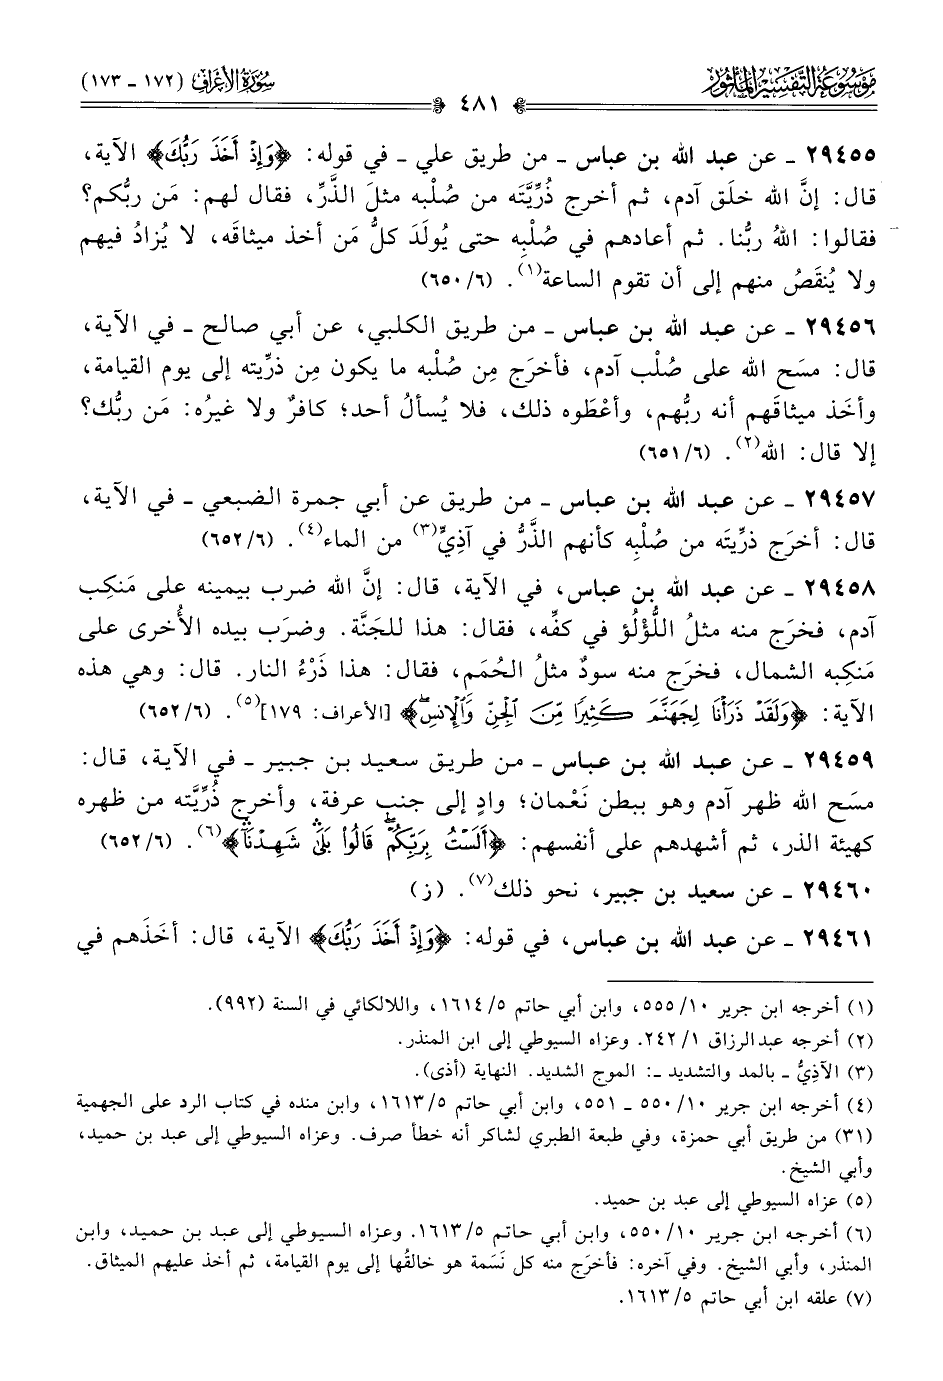 مَوْسُوعَةُ التَّفْسِيْرِ المَأْثُور
سُورَةُ الأَعْرَاف (١٧٢ - ١٧٣)
٤٨١
٢٩٤٥٥ ـ عن عبد الله بن عباس ـ من طريق علي ـ في قوله: ﴿وَإِذْ أَخَذَ رَبُّكَ﴾ الآية،
قال: إنَّ الله خلَق آدم، ثم أخرج ذُرِّيَّته من صُلْبه مثلَ الذَّرِّ، فقال لهم: مَن ربُّكم؟
فقالوا: اللهُ ربُّنا. ثم أعادهم في صُلْبِه حتى يُولَدَ كلُّ مَن أخذ ميثاقَه، لا يُزادُ فيهم
ولا يُنقَصُ منهم إلى أن تقوم الساعة(١). (٦/ ٦٥٠)
٢٩٤٥٦ ـ عن عبد الله بن عباس ـ من طريق الكلبي، عن أبي صالح ـ في الآية،
قال: مسَح الله على صُلْب آدم، فأخرَج مِن صُلْبه ما يكون مِن ذرِّيته إلى يوم القيامة،
وأخَذ ميثاقَهم أنه ربُّهم، وأعْطَوه ذلك، فلا يُسألُ أحد؛ كافرٌ ولا غيرُه: مَن ربُّك؟
إلا قال: الله(٢). (٦/ ٦٥١)
٢٩٤٥٧ ـ عن عبد الله بن عباس ـ من طريق عن أبي جمرة الضبعي ـ في الآية،
قال: أخرَج ذرِّيتَه من صُلْبِه كأنهم الذَّرُّ في آذِيٍّ(٣) من الماء(٤). (٦/ ٦٥٢)
٢٩٤٥٨ ـ عن عبد الله بن عباس، في الآية، قال: إنَّ الله ضرب بيمينه على مَنكِب
آدم، فخرَج منه مثلُ اللُّؤْلُؤ في كفِّه، فقال: هذا للجَنَّة. وضرَب بيده الأُخرى على
مَنكِبه الشمال، فخرَج منه سودٌ مثلُ الحُمَم، فقال: هذا ذَرْءُ النار. قال: وهي هذه
الآية: ﴿وَلَقَدْ ذَرَأْنَا لِجَهَنَّمَ كَثِيرًا مِّنَ الْجِنِّ وَالْإِنسِ﴾ [الأعراف: ١٧٩](٥). (٦/ ٦٥٢)
٢٩٤٥٩ ـ عن عبد الله بن عباس ـ من طريق سعيد بن جبير ـ في الآية، قال:
مسَح الله ظهر آدم وهو ببطن نَعْمان؛ وادٍ إلى جنبِ عرفة، وأخرج ذُرِّيَّته من ظهره
كهيئة الذر، ثم أشهدهم على أنفسهم: ﴿أَلَسْتُ بِرَبِّكُمْ قَالُوا بَلَىٰ شَهِدْنَا﴾(٦). (٦/ ٦٥٢)
٢٩٤٦٠ ـ عن سعيد بن جبير، نحو ذلك(٧). (ز)
٢٩٤٦١ ـ عن عبد الله بن عباس، في قوله: ﴿وَإِذْ أَخَذَ رَبُّكَ﴾ الآية، قال: أخَذَهم في
(١) أخرجه ابن جرير ١٠/ ٥٥٥، وابن أبي حاتم ٥/ ١٦١٤، واللالكائي في السنة (٩٩٢).
(٢) أخرجه عبدالرزاق ١/ ٢٤٢. وعزاه السيوطي إلى ابن المنذر.
(٣) الآذِيُّ ـ بالمد والتشديد ـ: الموج الشديد. النهاية (أذى).
(٤) أخرجه ابن جرير ١٠/ ٥٥٠ ـ ٥٥١، وابن أبي حاتم ٥/ ١٦١٣، وابن منده في كتاب الرد على الجهمية
(٣١) من طريق أبي حمزة، وفي طبعة الطبري لشاكر أنه خطأ صرف. وعزاه السيوطي إلى عبد بن حميد،
وأبي الشيخ.
(٥) عزاه السيوطي إلى عبد بن حميد.
(٦) أخرجه ابن جرير ١٠/ ٥٥٠، وابن أبي حاتم ٥/ ١٦١٣. وعزاه السيوطي إلى عبد بن حميد، وابن
المنذر، وأبي الشيخ. وفي آخره: فأخرَج منه كل نَسَمة هو خالقُها إلى يوم القيامة، ثم أخذ عليهم الميثاق.
(٧) علقه ابن أبي حاتم ٥/ ١٦١٣.